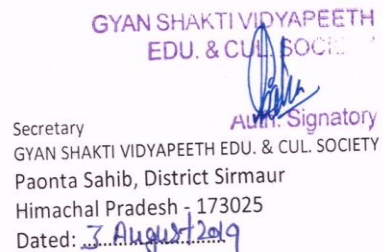 GYAN SHAKTI VIDYAPEETH
EDU. & CUL. SOCIETY
Auth. Signatory
Secretary
GYAN SHAKTI VIDYAPEETH EDU. & CUL. SOCIETY
Paonta Sahib, District Sirmaur
Himachal Pradesh - 173025
Dated: 3 August 2019